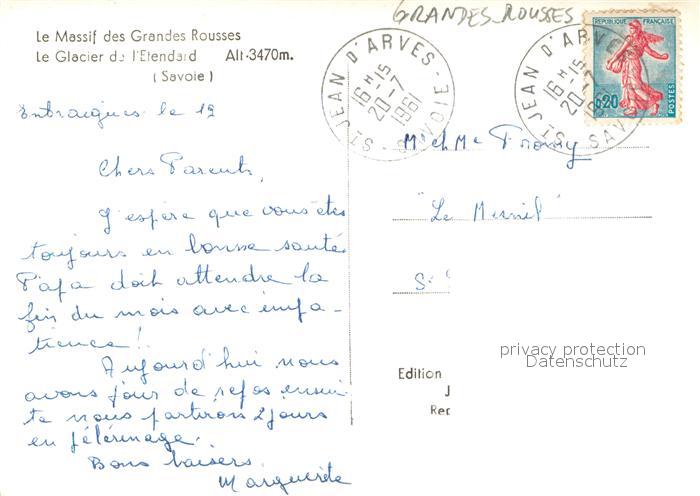 GRANDES ROUSSES
Le Massif des Grandes Rousses
Le Glacier de l'Etendard Alt. 3470m.
( Savoie )
ST JEAN D'ARVES - SAVOIE
16 H 15
20 - 7
1961
ST JEAN D'ARVES
16 H 15
20 - 7
SAVOIE
REPUBLIQUE FRANÇAISE
0,20
POSTES
Entraigues le 19
Chers Parents,
J'espère que vous êtes
toujours en bonne santé
Papa doit attendre la
fin du mois avec impa-
tience !.
Aujourd'hui nous
avons jour de repos ensui
te nous partirons 2 jours
en pélérinage.
Bons baisers.
Marguerite
M et Me
"Le Mesnil"
St
Edition
J
Rec
privacy protection
Datenschutz